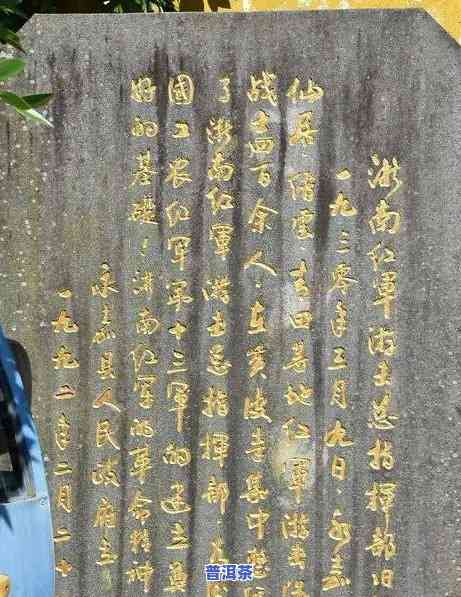 浙南红軍游击总指揮部旧
一九三零年三月九日·永嘉
仙居·缙雲·青田等地红軍游击
战士四百余人·在黄皮寺集中
了浙南红軍游击总指揮部·为
國工农红軍軍十三軍的建立奠
好的基礎！浙南红军的革命精神
永嘉县人民政府立
一九九二年二月二十
普洱茶